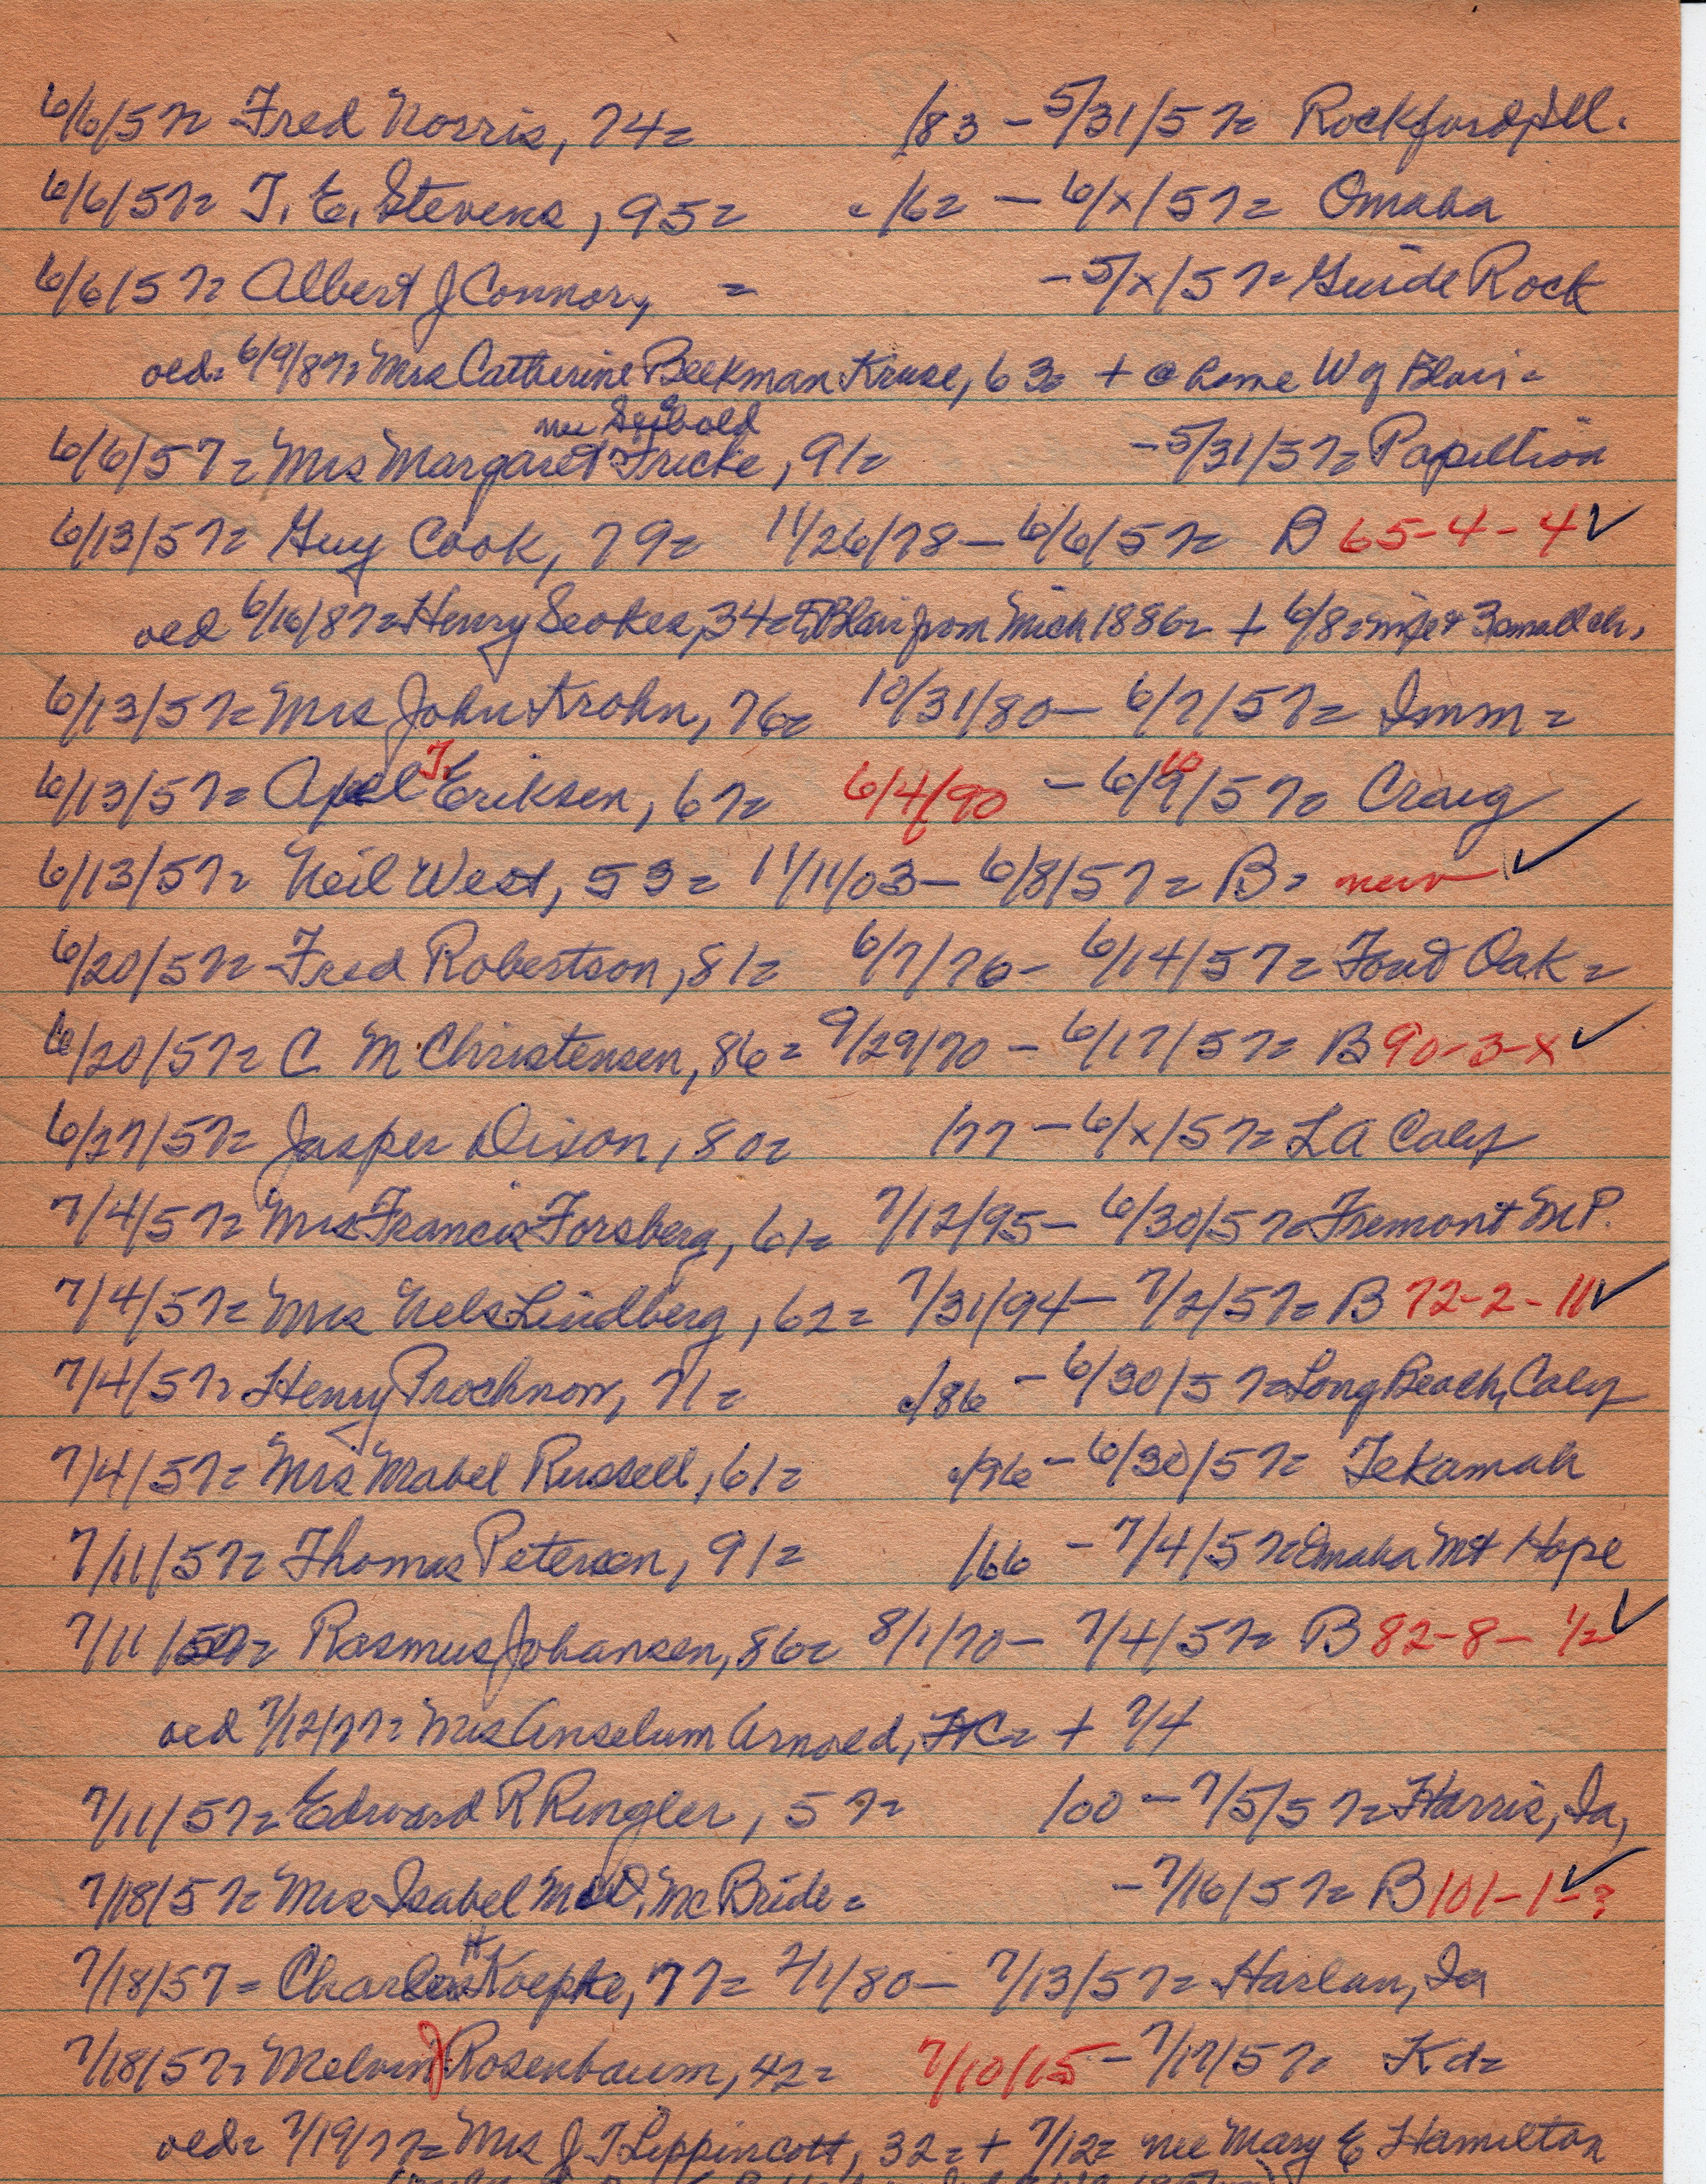 6/6/57= Fred Norris, 74= /83 - 5/31/57= Rockford, Ill.
6/6/57= T. E. Stevens, 95= c/62 - 6/x/57= Omaha
6/6/57= Albert J Connory, = - 5/x/57= Guide Rock
oed= 6/9/87= Mrs Catherine Beekman Kruse, 63= + @ home W of Blair=
nee Seibold
6/6/57= Mrs Margaret Fricke, 91= - 5/31/57= Papillion
6/13/57= Guy Cook, 79= 11/26/78 - 6/6/57= B 65-4-4 ✓
oed 6/16/87= Henry 34= Blair from Mich 1886= + 6/8= wife & 3 small ch,
6/13/57= Mrs John Krohn, 76= 10/31/80 - 6/7/57= Imm=
6/13/57= Axel T. Eriksen, 67= 6/4/90 - 6/9/57= 10 Craig
6/13/57= Neil West, 53= 11/11/03 - 6/8/57= B= new ✓
6/20/57= Fred Robertson, 81= 6/7/76 - 6/14/57= Oak=
6/20/57= C M Christensen, 86= 9/29/70 - 6/17/57= B 90-3-x ✓
6/27/57= Jasper Dixon, 80= /77 - 6/x/57= LA Calif
7/4/57= Mrs Francis Forsberg, 61= 7/12/95 - 6/30/57= Fremont M P.
7/4/57= Mrs Nels Lindberg, 62= 7/31/94 - 7/2/57= B 72-2-11 ✓
7/4/57= Henry Prochnow, 71= c/86 - 6/30/57= Long Beach, Calif
7/4/57= Mrs Mabel Russell, 61= c/96 - 6/30/57= Tekamah
7/11/57= Thomas Petersen, 91= /66 - 7/4/57= Omaha Mt Hope
7/11/57= Rasmus Johansen, 86= 8/1/70 - 7/4/57= B 82-8- 1/2 ✓
oed 7/12/77= Mrs Anselum Arnold, FtC= + 7/4
7/11/57= Edward R Ringler, 57= /00 - 7/5/57= Harris, Ia,
7/18/57= Mrs Isabel McBride= - 7/16/57= B 101-1-? ✓
7/18/57= Charles H Koepke, 77= 2/1/80 - 7/13/57= Harlan, Ia
7/18/57= Melvin J Rosenbaum, 42= 7/10/15 - 7/17/57= Kd=
oed= 7/19/77= Mrs J T Lippincott, 32= + 7/12= nee Mary E Hamilton